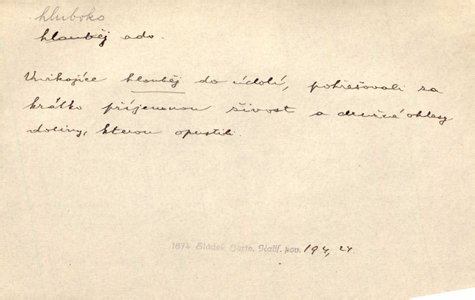 hluboko
hlouběj adv.
Vnikajíce hlouběj do údolí, pohřešovali za
krátko příjemnou živost a družné ohlasy
doliny, kterou opustili.
1874 Sládek Harte, Kalif. pov. 194, 24.